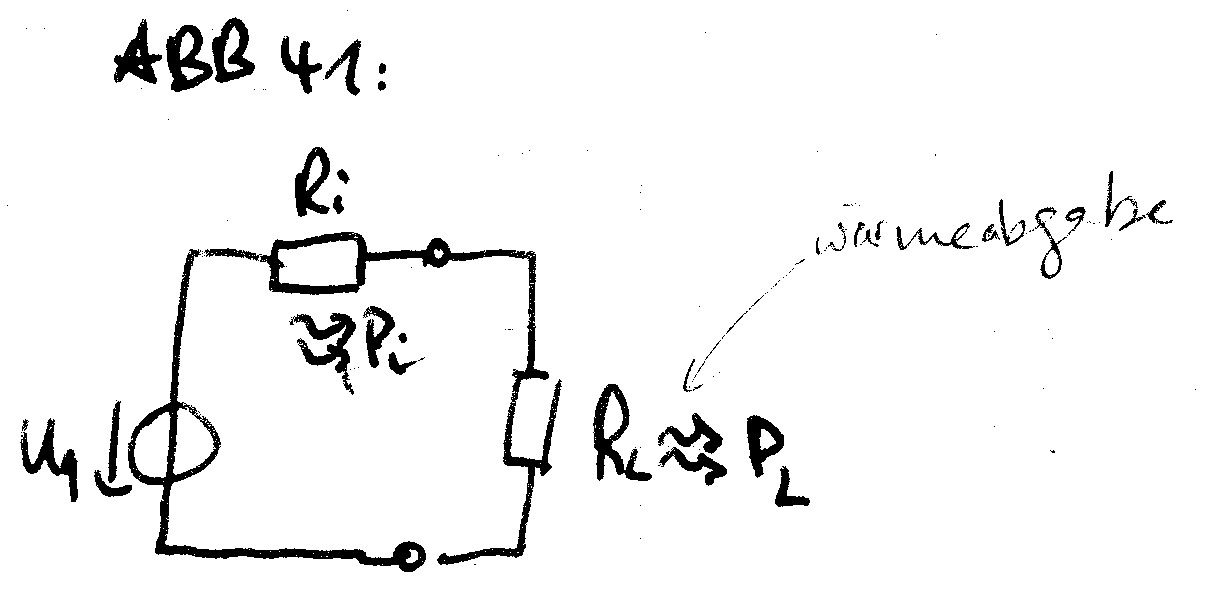 ABB 41:
Ri
wärmeabgabe
Pi
Uq
RL
PL